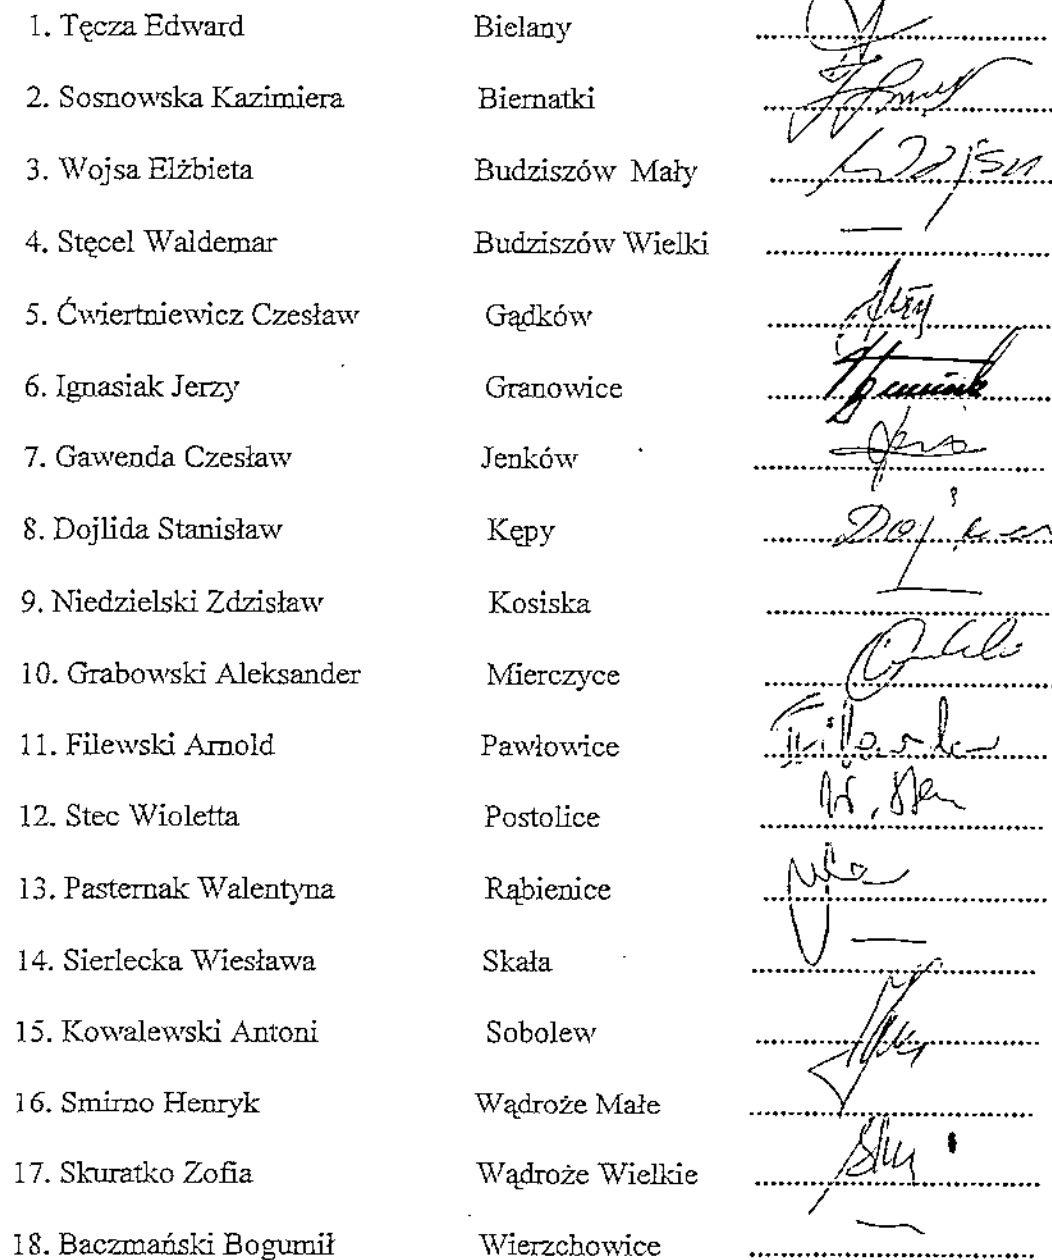 1. Tęcza Edward Bielany
2. Sosnowska Kazimiera Biernatki
3. Wojsa Elżbieta Budziszów Mały
4. Stęcel Waldemar Budziszów Wielki
5. Ćwiertniewicz Czesław Gądków
6. Ignasiak Jerzy Granowice
7. Gawenda Czesław Jenków
8. Dojlida Stanisław Kępy
9. Niedzielski Zdzisław Kosiska
10. Grabowski Aleksander Mierczyce
11. Filewski Arnold Pawłowice
12. Stec Wioletta Postolice
13. Pasternak Walentyna Rąbienice
14. Sierlecka Wiesława Skała
15. Kowalewski Antoni Sobolew
16. Smirno Henryk Wądroże Małe
17. Skuratko Zofia Wądroże Wielkie
18. Baczmański Bogumił Wierzchowice